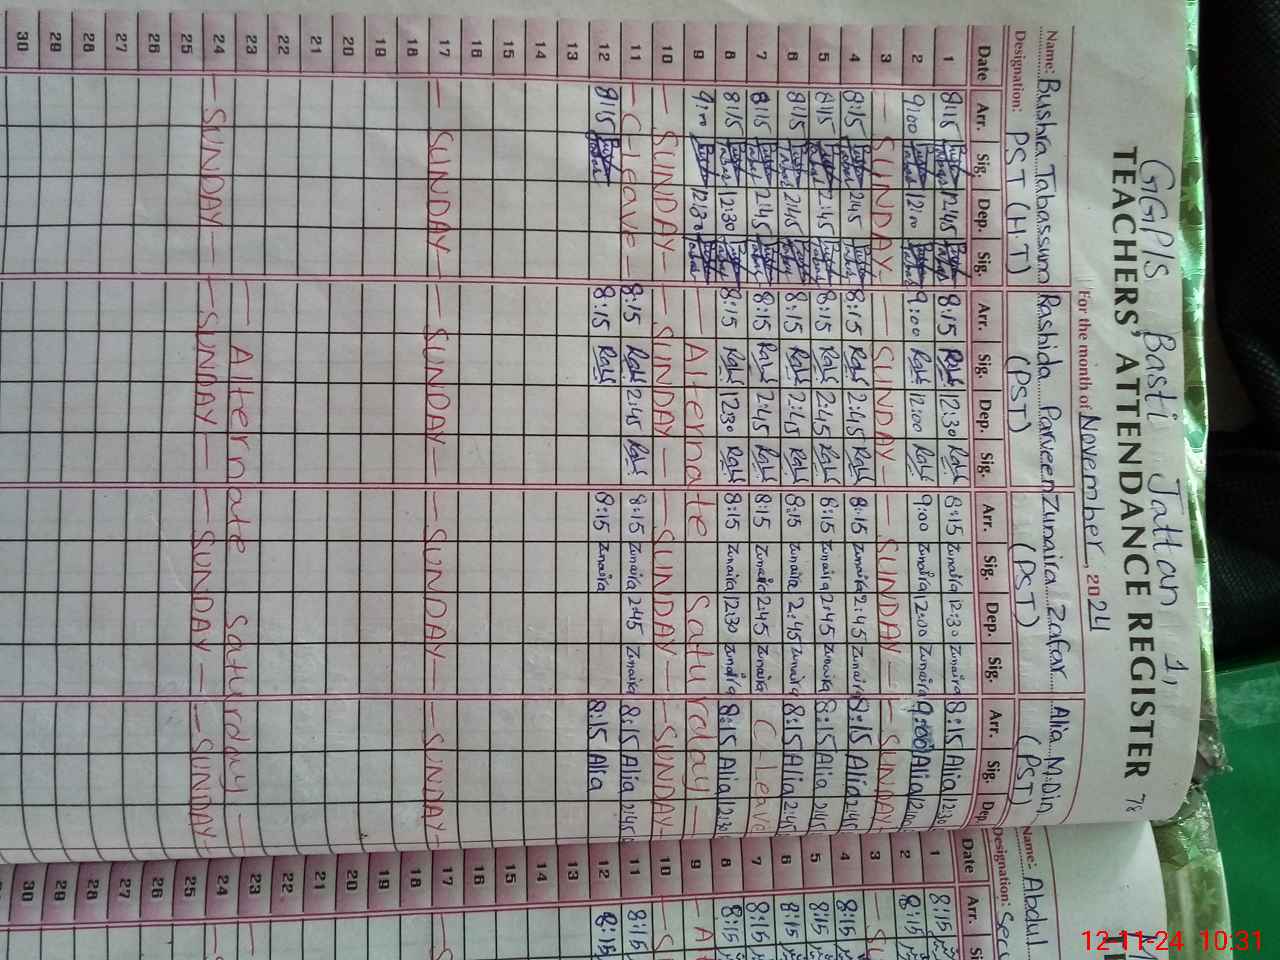 GGP/S Basti Jattan 1,,
TEACHERS' ATTENDANCE REGISTER 78
For the month of November, 2024
Name: Bushra Tabassum Rashida Parveen Zunaira Zafar Alia M.Din
Designation: PST (H.T) (PST) (PST) (PST)
Date Arr. Sig. Dep. Sig. Arr. Sig. Dep. Sig. Arr. Sig. Dep. Sig. Arr. Sig. Dep.
1 8:15 12:45 8:15 12:30 8:15 Zunaira 12:30 Zunaira 8:15 Alia 12:30
2 9:00 12:00 9:00 12:00 9:00 Zunaira 12:00 Zunaira 9:00 Alia 12:00
3 — SUNDAY — — SUNDAY — — SUNDAY — — SUNDAY —
4 8:15 2:45 8:15 2:45 8:15 Zunaira 2:45 Zunaira 8:15 Alia 2:45
5 8:15 2:45 8:15 2:45 8:15 Zunaira 2:45 Zunaira 8:15 Alia 2:45
6 8:15 2:45 8:15 2:45 8:15 Zunaira 2:45 Zunaira 8:15 Alia 2:45
7 8:15 2:45 8:15 2:45 8:15 Zunaira 2:45 Zunaira C-leave
8 8:15 12:30 8:15 12:30 8:15 Zunaira 12:30 Zunaira 8:15 Alia 12:30
9 9:00 12:30 — Alternate Saturday —
10 — SUNDAY — — SUNDAY — — SUNDAY — — SUNDAY —
11 — C-leave — 8:15 2:45 8:15 Zunaira 2:45 Zunaira 8:15 Alia 2:45
12 8:15 8:15 8:15 Zunaira 8:15 Alia
13
14
15
16
17 — SUNDAY — — SUNDAY — — SUNDAY — — SUNDAY —
18
19
20
21
22
23 — Alternate Saturday —
24 — SUNDAY — — SUNDAY — — SUNDAY — — SUNDAY —
25
26
27
28
29
30
Name: Abdul
Designation: Sec
Date Arr.
1 8:15
2 8:15
3
4 8:15
5 8:15
6 8:15
7 8:15
8 8:15
9 — A
10
11 8:15
12 8:15
13
14
15
16
17
18
19
20
21
22
23
24
25
26
27
28
29
30
12-11-24 10:31